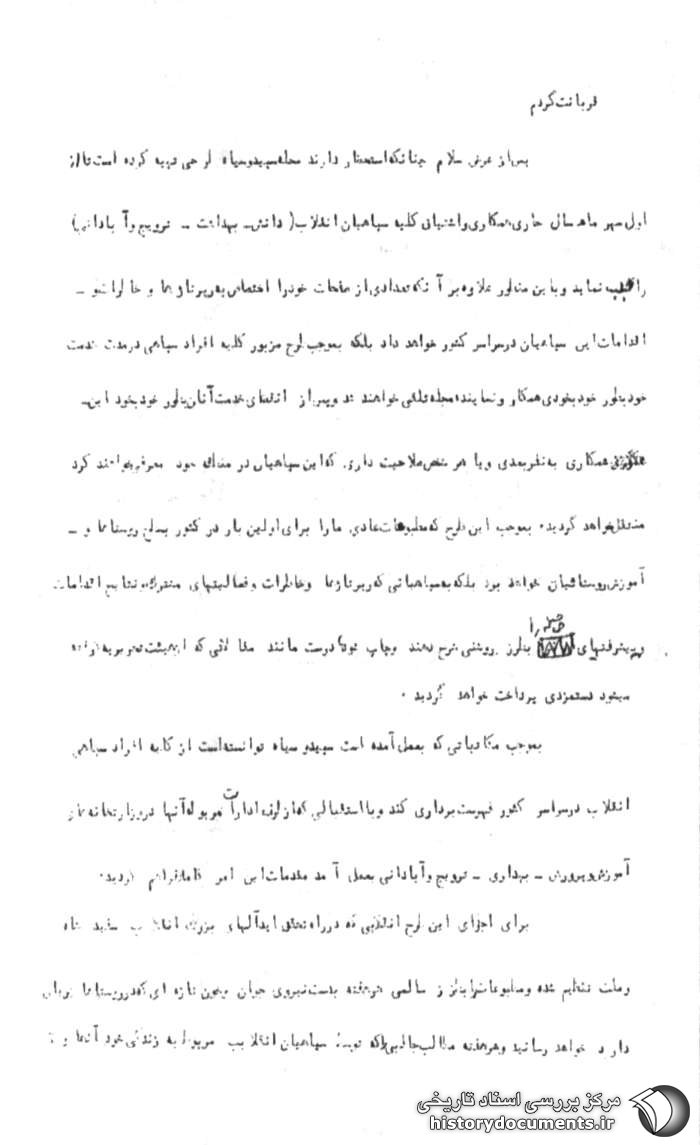 قربانت گردم
پس از عرض سلام چنانکه استحضار دارند مجله سپید و سیاه طرحی تهیه کرده است تا از
اول مهر ماه سال جاری همکاری و پشتیبانی کلیه سپاهیان انقلاب ( دانش ـ بهداشت ـ ترویج و آبادانی)
را جلب نماید و باین منظور علاوه بر آنکه تعدادی از صفحات خود را اختصاص به رپرتاژها و خاطرات و ـ
اقدامات این سپاهیان در سراسر کشور خواهد داد بلکه بموجب طرح مزبور کلیه افراد سپاهی در مدت خدمت
خود بطور خودبخودی همکار و نماینده مجله تلقی خواهند شد و پس از انقضای خدمت آنان بطور خودبخود این ـ
همکاری به نفر بعدی و یا هر شخص صلاحیت داری که این سپاهیان در منطقه خود معرفی خواهند کرد
منتقل خواهد گردید . بموجب این طرح که مطبوعات عادی ما را برای اولین بار در کشور بسطح روستاها و ـ
آموزش روستائیان خواهد برد بلکه به سپاهیانی که رپرتاژها و خاطرات و فعالیتهای متفرقه و نتایج اقدامات
و پیشرفتهای بطرز روشنی شرح دهند و چاپ شود درست مانند مقالاتی که از هیئت تحریریه
میشود دستمزدی پرداخت خواهد گردید .
بموجب مکاتباتی که بعمل آمده است سپید و سیاه توانسته است از کلیه افراد سپاهی
انقلاب در سراسر کشور فهرست برداری کند و با استقبالی که از طرف ادارات مربوطه آنها در وزارتخانه های
آموزش و پرورش ـ بهداری ـ ترویج و آبادانی بعمل آمد مقدمات این امر کاملا فراهم گردید .
برای اجرای این طرح انقلابی که در راه تحقق ایدآلهای بزرگ انقلاب سفید شاه
و ملت تنظیم شده و مطبوعات را بطرز سالمی هر هفته بدست نیروی جوان و خون تازه ای که در روستاها جریان
دارد خواهد رسانید و هر هفته مطالب جالبی را که توسط سپاهیان انقلاب مربوط به زندگی خود آنها و
مرکز بررسی اسناد تاریخی
historydocuments.ir